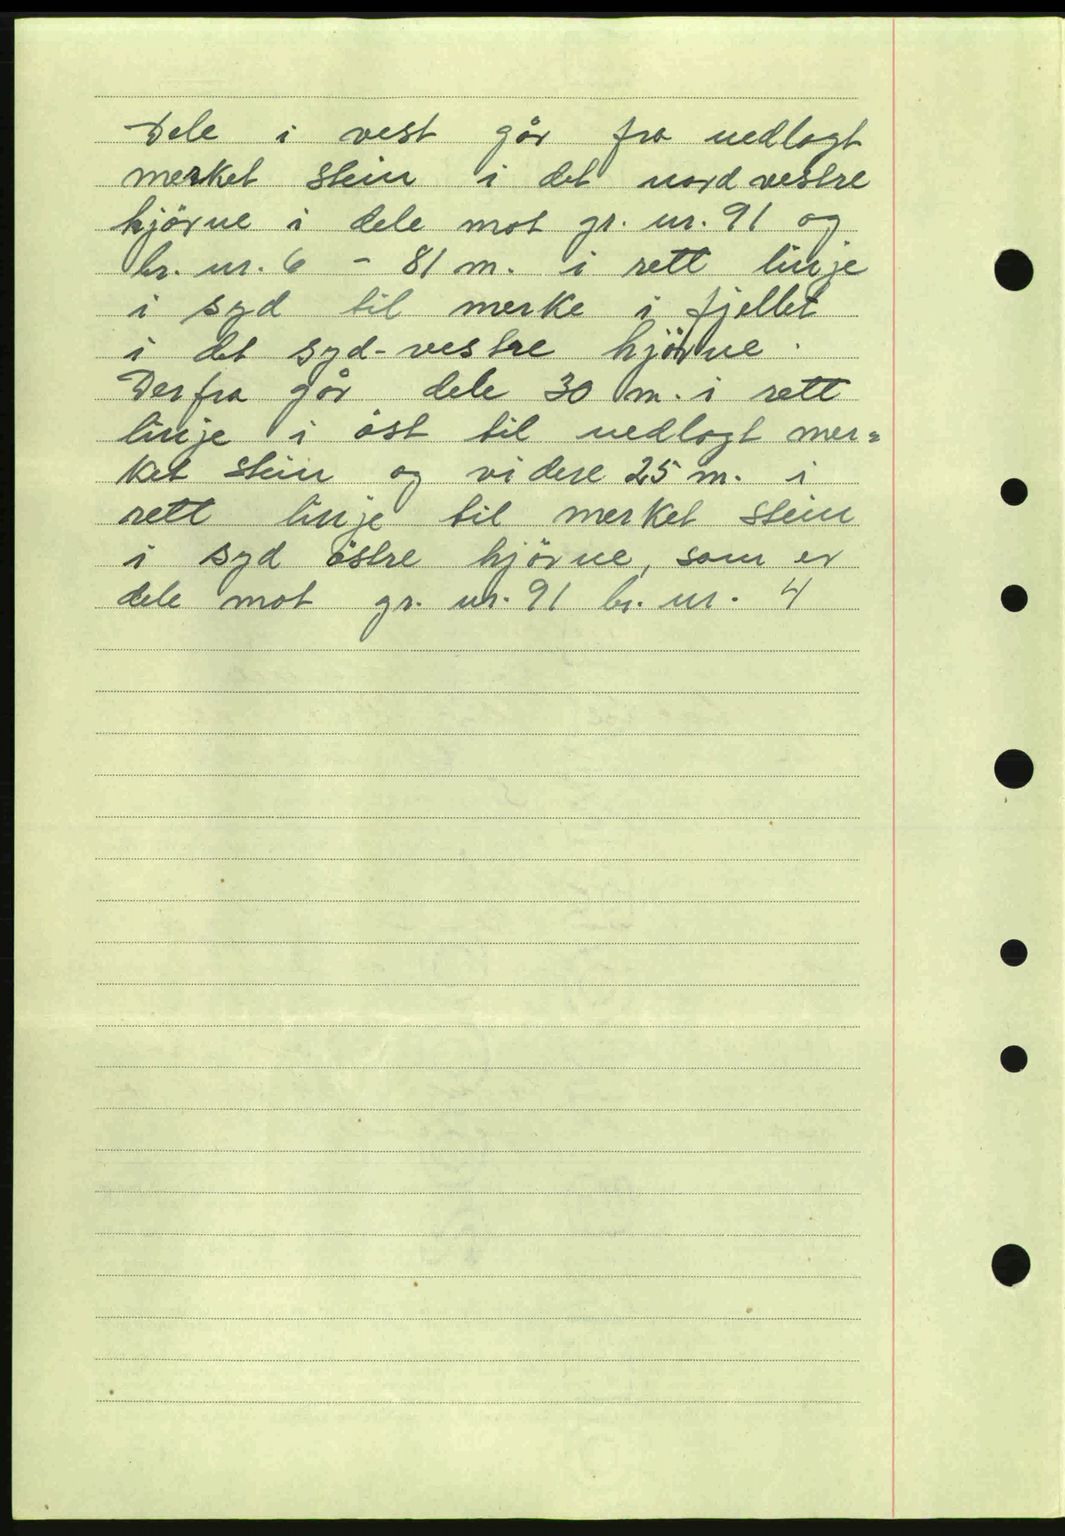 Dele i vest går fra nedlagt
merket stein i det nordvestre
hjörne i dele mot gr. nr. 91 og
br. nr. 6 - 81 m. i rett linje
i syd til merke i fjellet
i det syd-vestre hjörne.
Derfra går dele 30 m. i rett
linje i öst til nedlagt mer=
ket stein og videre 25 m. i
rett linje til merket stein
i syd östre hjörne, som er
dele mot gr. nr. 91 br. nr. 4